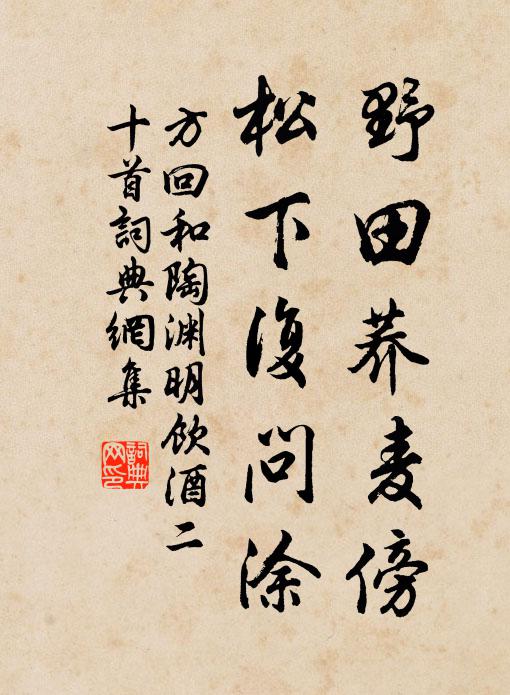 野田荞麦傍
松下復问涂
方回和陶渊明饮酒二
十首詞典網集
詞典网印